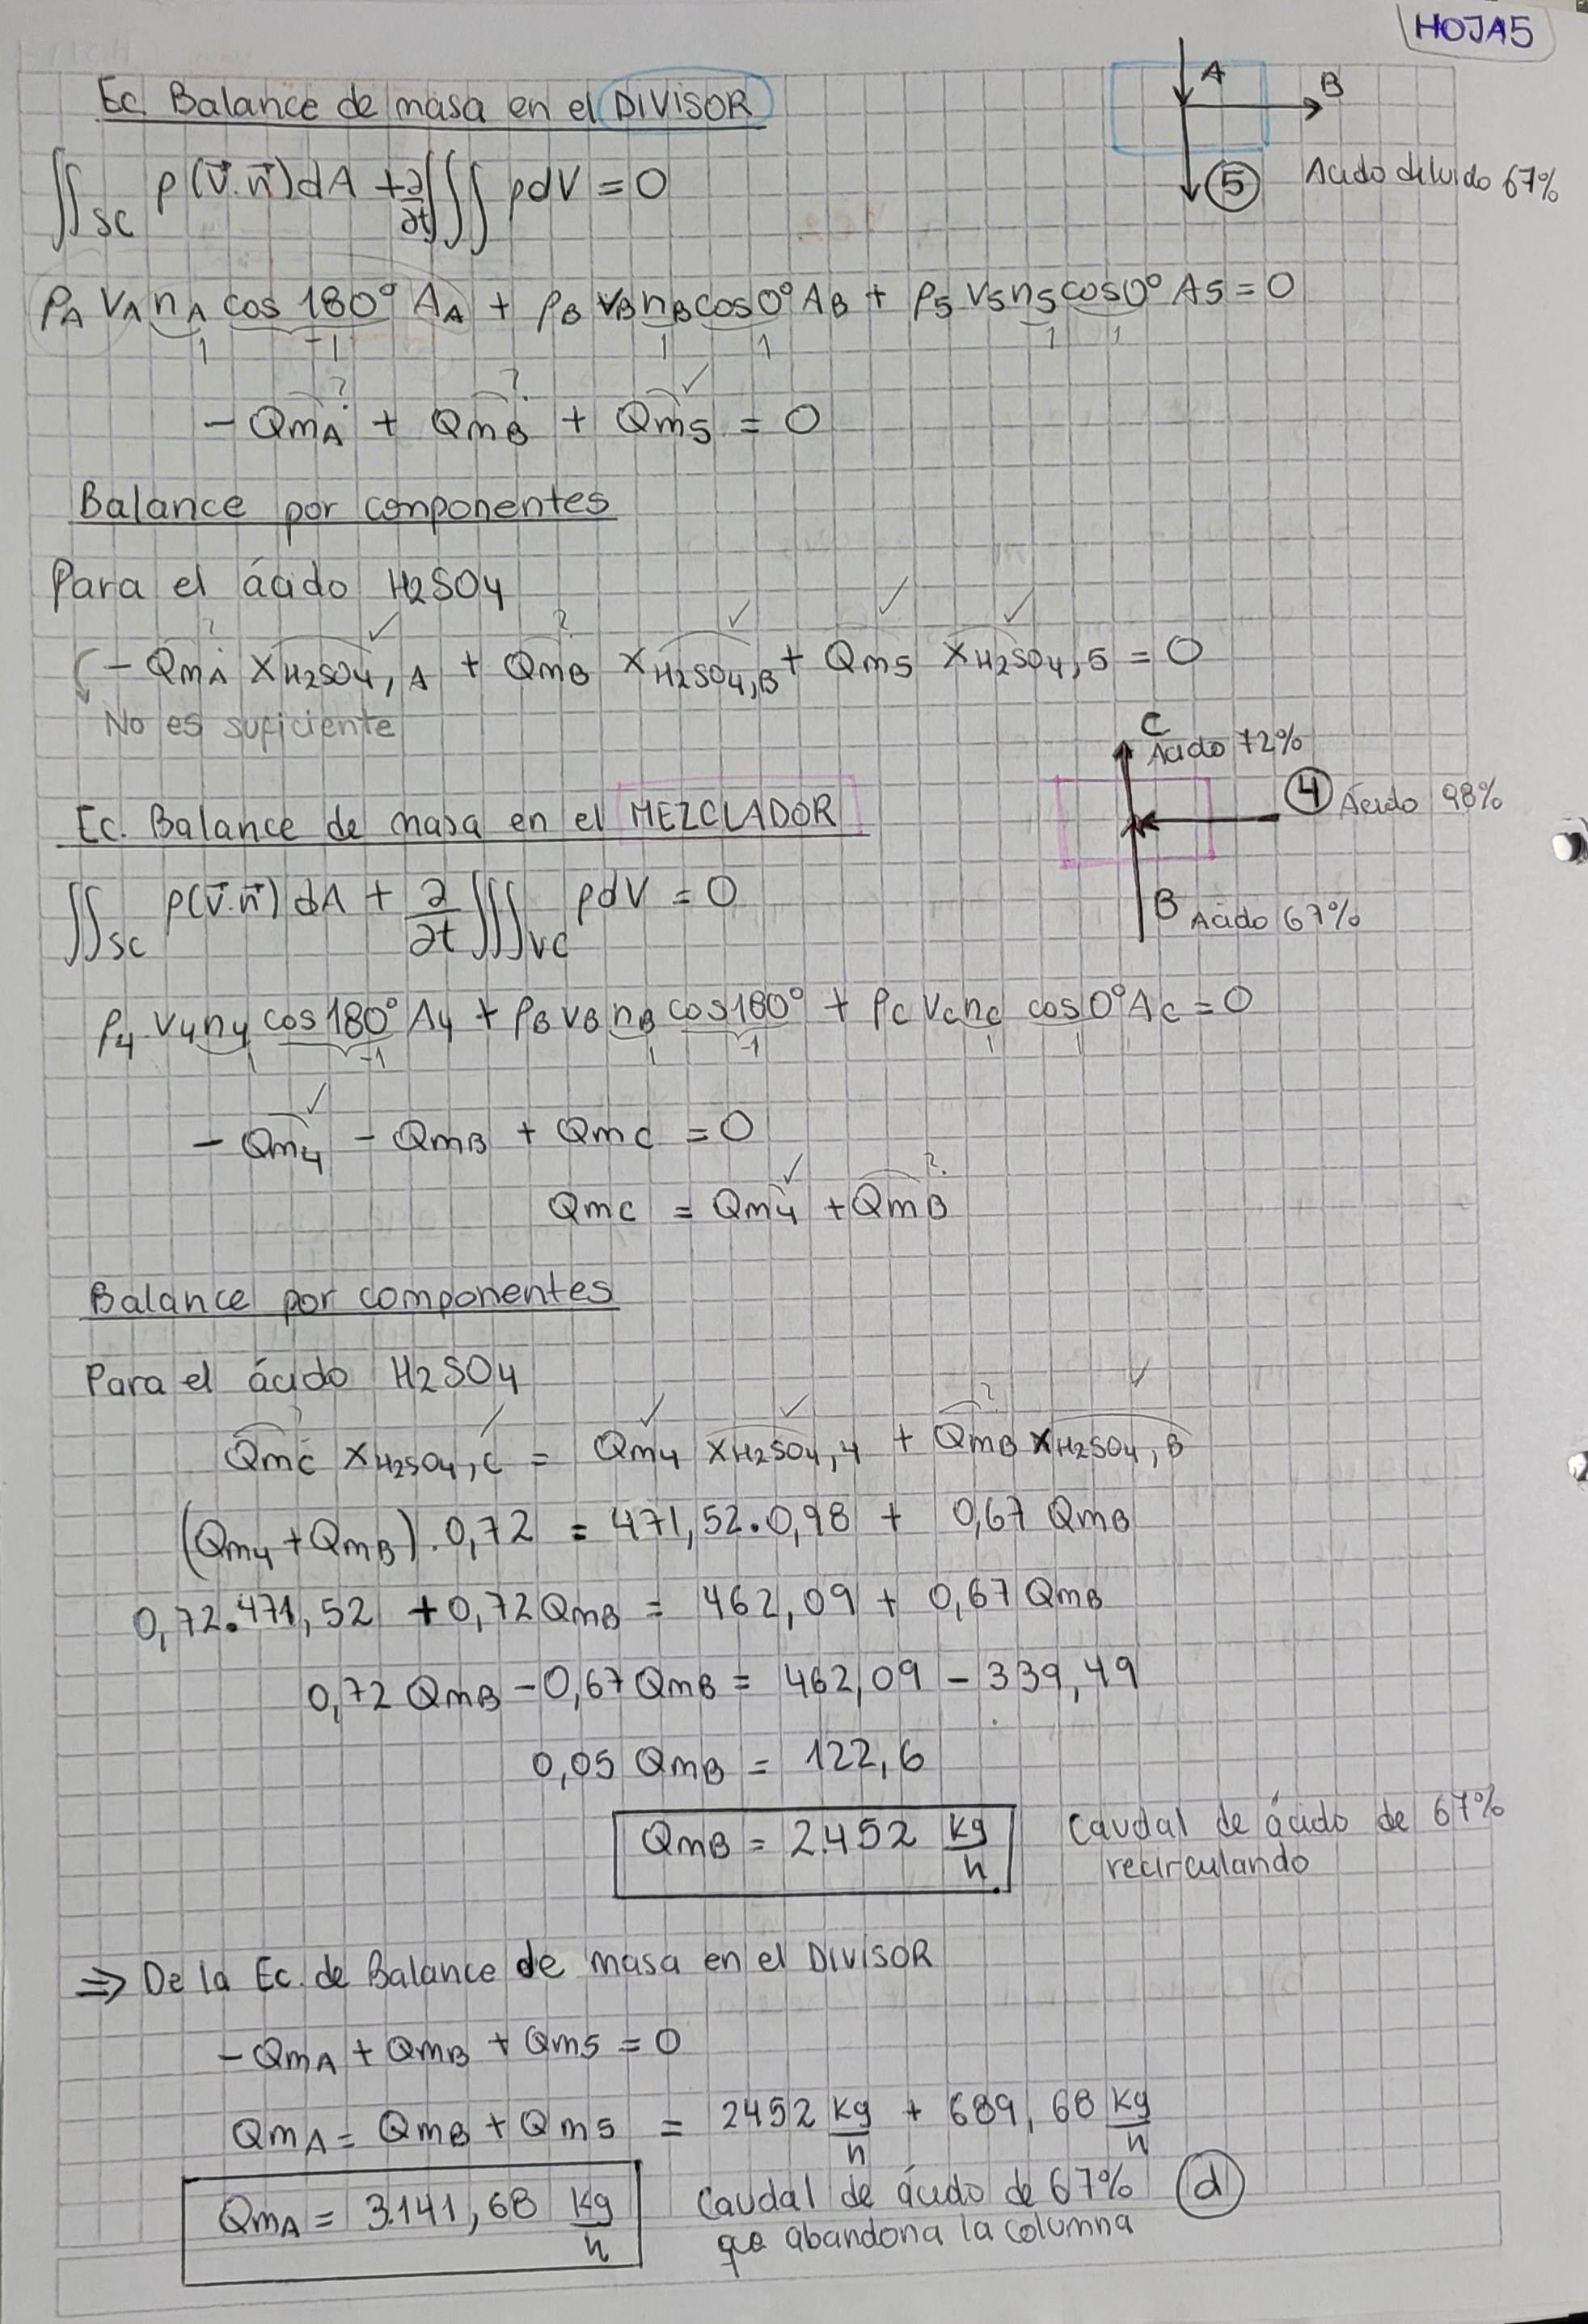 HOJA5
Ec. Balance de masa en el DIVISOR
A
B
⑤ Acido diluido 67%
∬SC ρ(v⃗.n⃗)dA + ∂/∂t ∭ ρdV = 0
ρA VA nA cos 180° AA + ρB VB nB cos0° AB + ρ5 V5 n5 cos0° A5 = 0
1 -1 1 1 1 1
? ? ✓
- QmA + QmB + Qm5 = 0
Balance por componentes
Para el ácido H2SO4
? ✓ ? ✓ ✓ ✓
- QmA XH2SO4,A + QmB XH2SO4,B + Qm5 XH2SO4,5 = 0
No es suficiente
C
Acido 72%
④ Acido 98%
B Acido 67%
Ec. Balance de masa en el MEZCLADOR
∬SC ρ(v⃗.n⃗)dA + ∂/∂t ∭VC ρdV = 0
ρ4 V4 n4 cos180° A4 + ρB VB nB cos180° + ρC VC nC cos0° AC = 0
1 -1 1 -1 1 1
✓
- Qm4 - QmB + QmC = 0
✓ ?
QmC = Qm4 + QmB
Balance por componentes
Para el ácido H2SO4
? ✓ ✓ ✓ ? ✓
QmC XH2SO4,C = Qm4 XH2SO4,4 + QmB XH2SO4,B
(Qm4 + QmB).0,72 = 471,52.0,98 + 0,67 QmB
0,72.471,52 + 0,72QmB = 462,09 + 0,67QmB
0,72 QmB - 0,67QmB = 462,09 - 339,49
0,05 QmB = 122,6
QmB = 2.452 kg/h Caudal de ácido de 67%
recirculando
⇒ De la Ec. de Balance de masa en el DIVISOR
- QmA + QmB + Qm5 = 0
QmA = QmB + Qm5 = 2452 kg/h + 689,68 kg/h
QmA = 3.141,68 kg/h Caudal de ácido de 67% ⓓ
que abandona la columna